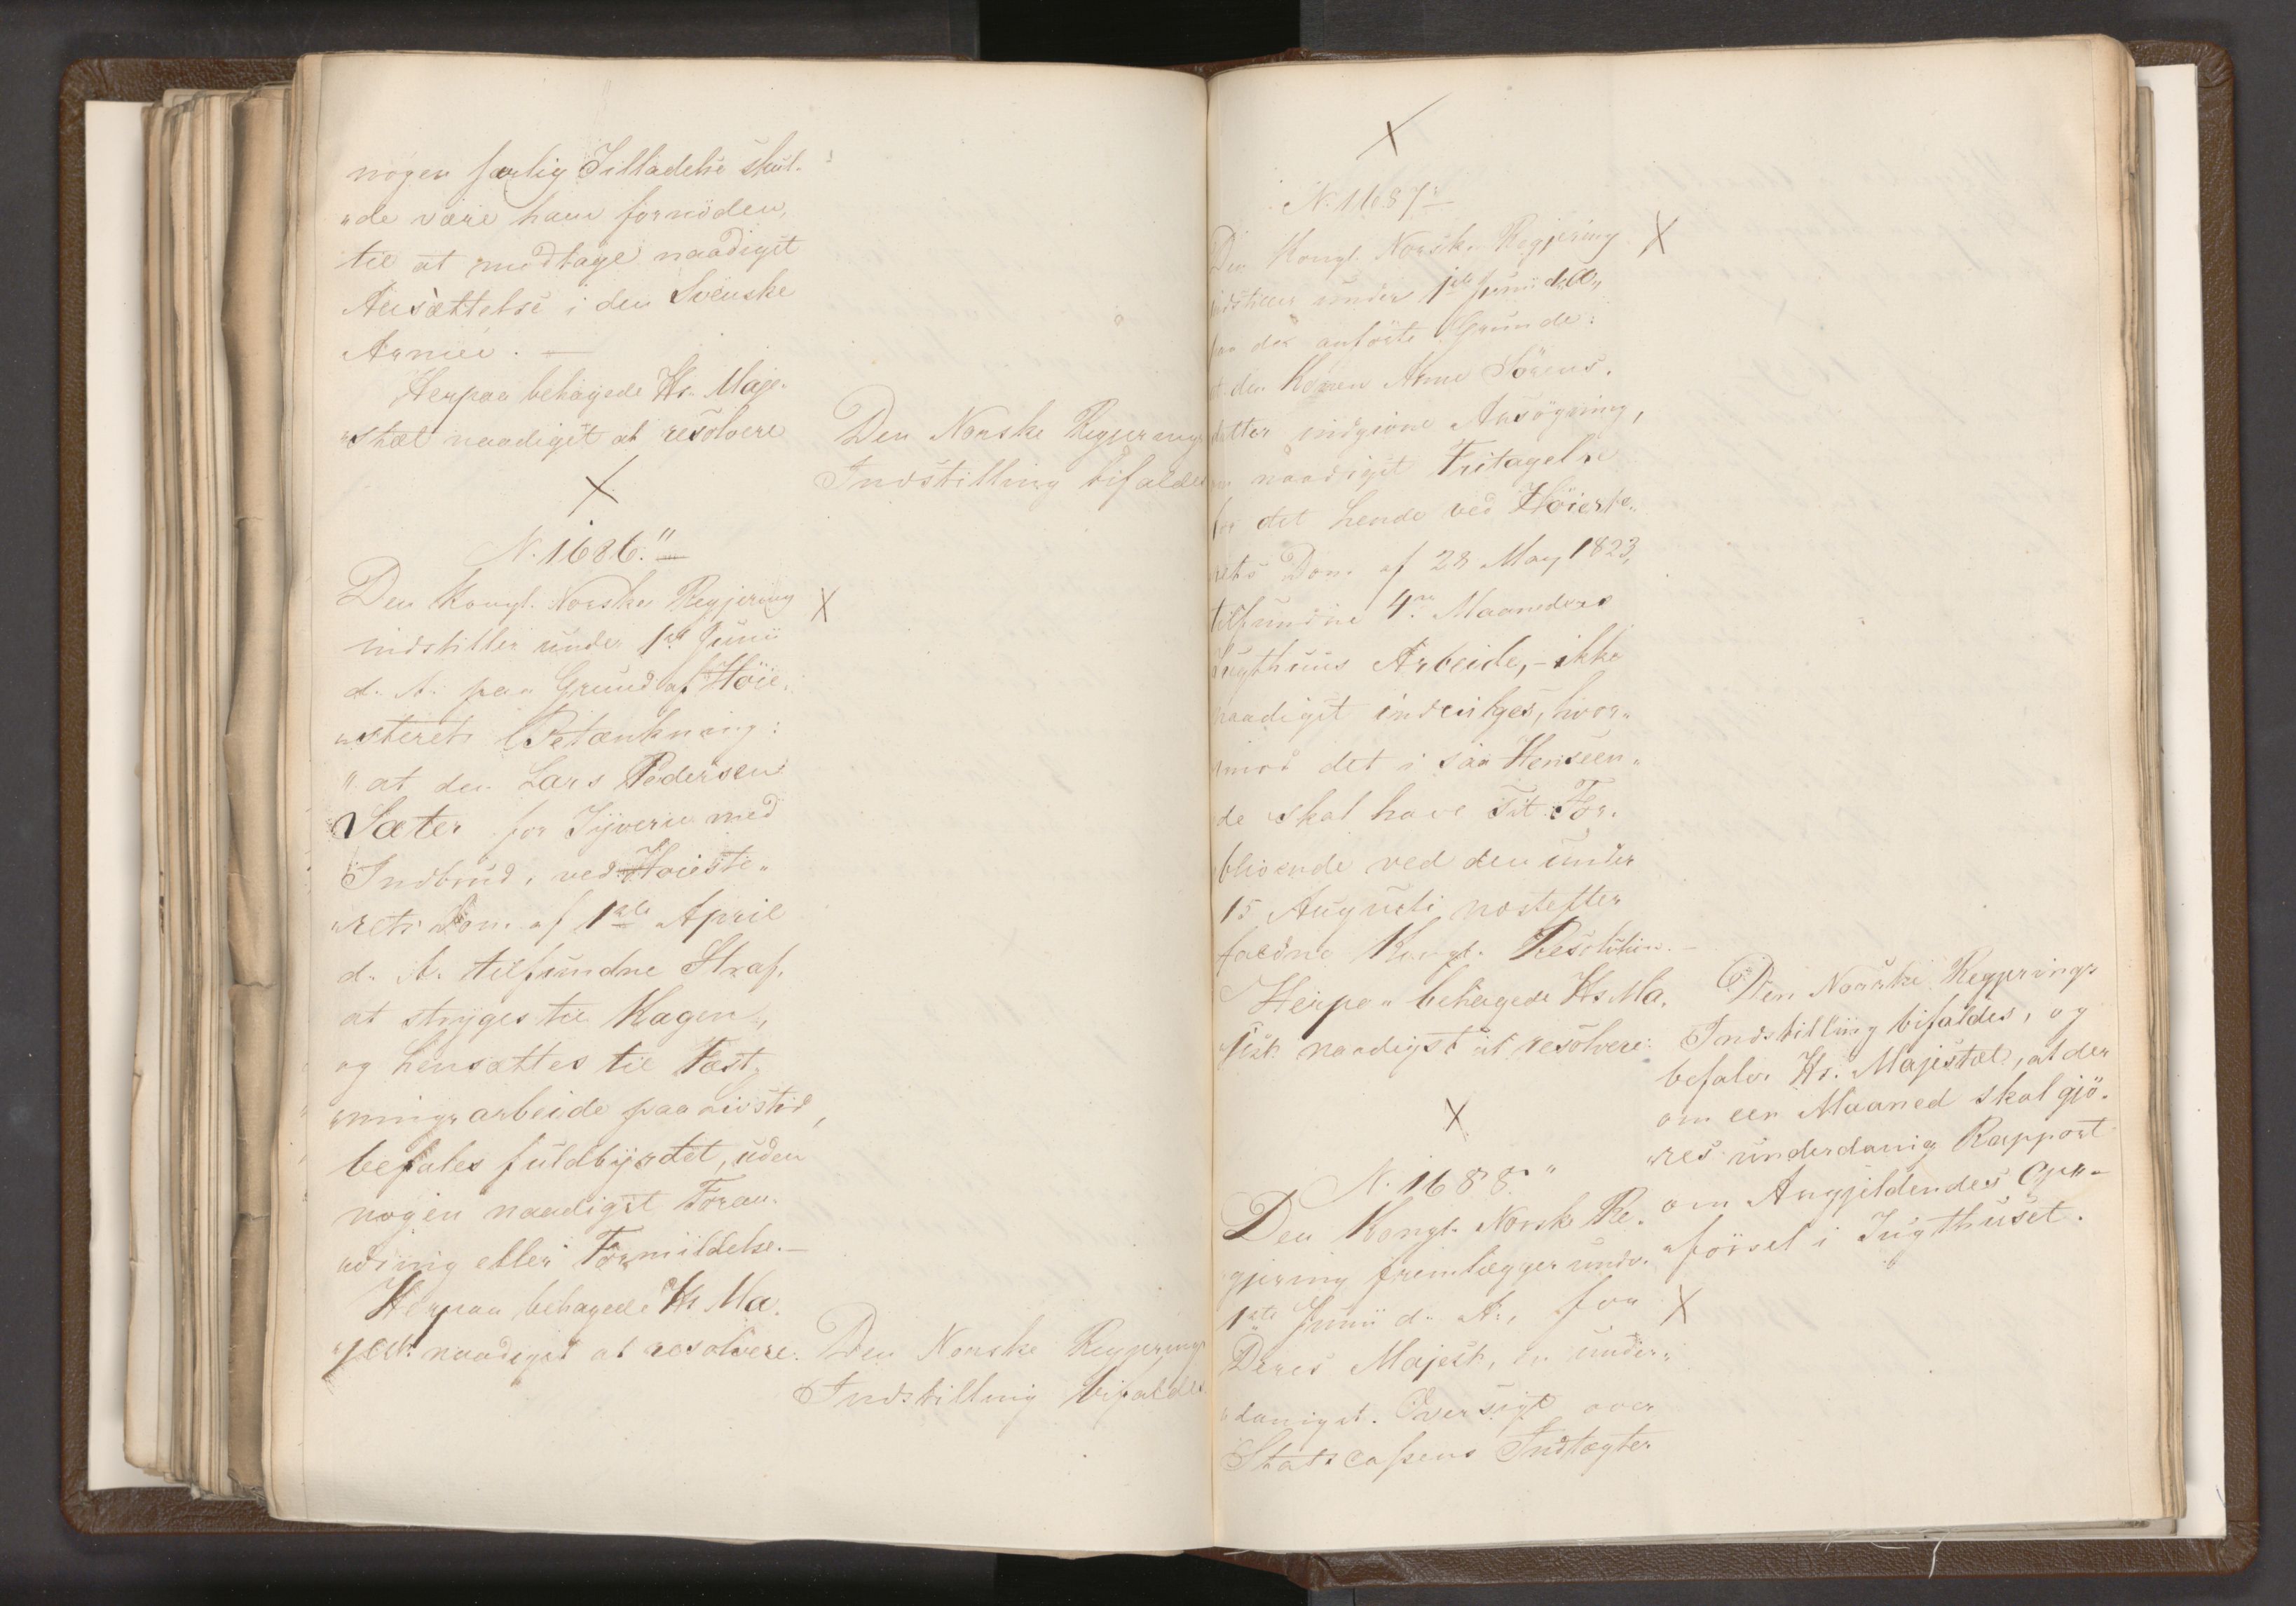 nogen særlig Tilladelse skul-
"de være ham fornöden,
til at modtage naadigst
Ansættelse i den Svenske
Armée. —
Herpaa behagede Hs. Maje-
"stæt naadigst at resolvere
Den Norske Regjerings
Indstilling bifaldes
X
N. 1686."
Den Kongl. Norske Regjering
X
indstiller under 1ste Junii
d. A. paa Grund af Höie-
"sterets Betænkning:
"at den Lars Pedersen
Sæter for Tyverie med
Indbrud, ved Høieste-
"rets Dom af 1ste April
d. A. tilfundne Straf,
at stryges til Kagen,
og hensættes til Fæst-
"ningsarbeide paa Livstid,
befales fuldbyrdet, uden
nogen naadigst Foran-
"dring eller Formildelse. —
Herpaa behagede Hs Ma-
"jest. naadigst at resolvere:
Den Norske Regjerings
Indstilling bifaldes
X
N. 1687
Den Kongl. Norske Regjering
X
indstiller under 1ste Junii d. A.,
paa der anförte Grunde:
at den Konen Anne Sörens-
datter indgivne Ansögning,
om naadigst Fritagelse
for det hende ved Höieste-
rets Dom af 28 May 1823,
tilfundne 4re Maaneders
Tugthuus Arbeide, - ikke
naadigst indvilges, hvor-
imod det i saa Henseen-
de skal have sit For-
blivende ved den under
15 Augusti nestefter
faldne Kongl. Resolution. —
Herpaa behagede Hs Ma-
jest. naadigst at resolvere:
Den Norske Regjerings
Indstilling bifaldes, og
befaler Hs. Majestæt, at der
om een Maaned skal gjö-
"res underdanig Rapport
om Angjeldendes Op-
"försel i Tugthuset.
X
N. 1688."
Den Kongl. Norsk Re-
gjering fremlægger under
1ste Junii d. A., for
X
Deres Majest. en under-
"danigst Oversigt over
Statscassens Indtægter